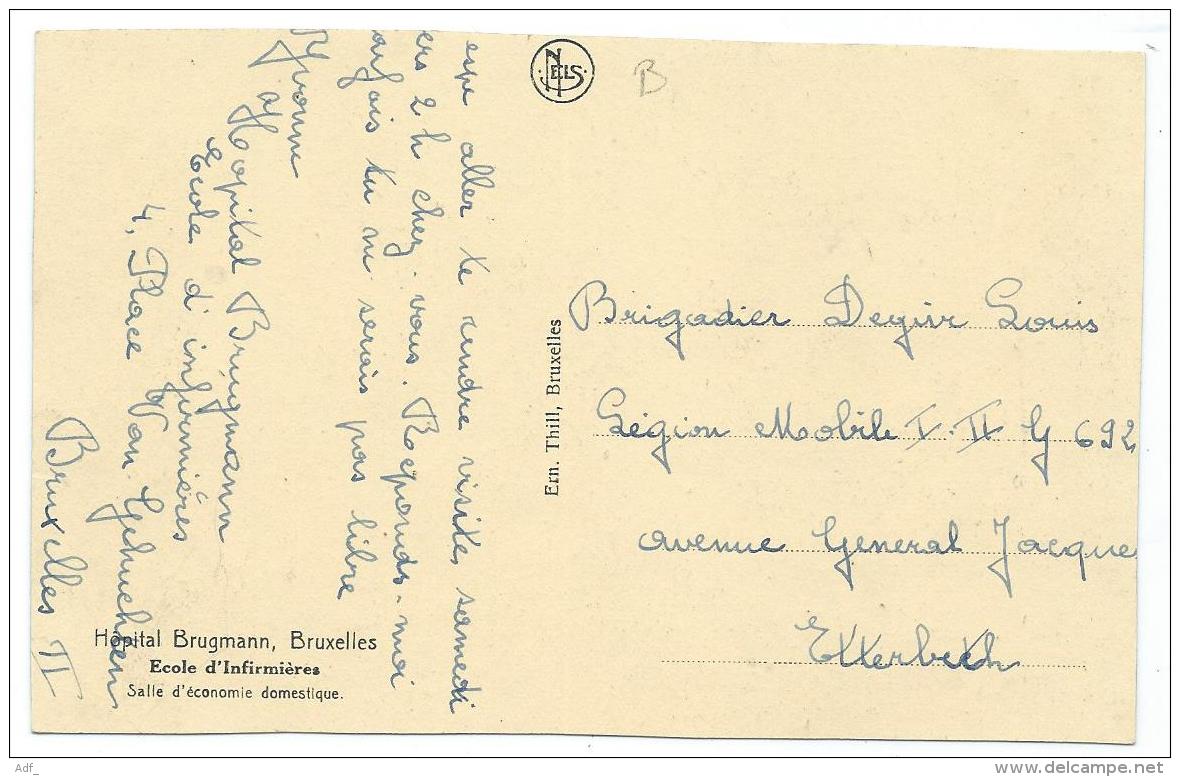 espr aller te rendre visite, samedi
ers 2 h chez-vous. Reponds-moi
ourfois tu ne serais pas libre
Yvonne
Hopital Brugmann
Ecole d'infirmières
4, Place Van Gehuchten
Bruxelles II
NELS
B
Ern. Thill, Bruxelles
Brigadier Degivr Louis
Légion Mobile I.II G 692
avenue General Jacque
Etterbeek
Hôpital Brugmann, Bruxelles
Ecole d'Infirmières
Salle d'économie domestique.
Adf_
www.delcampe.net